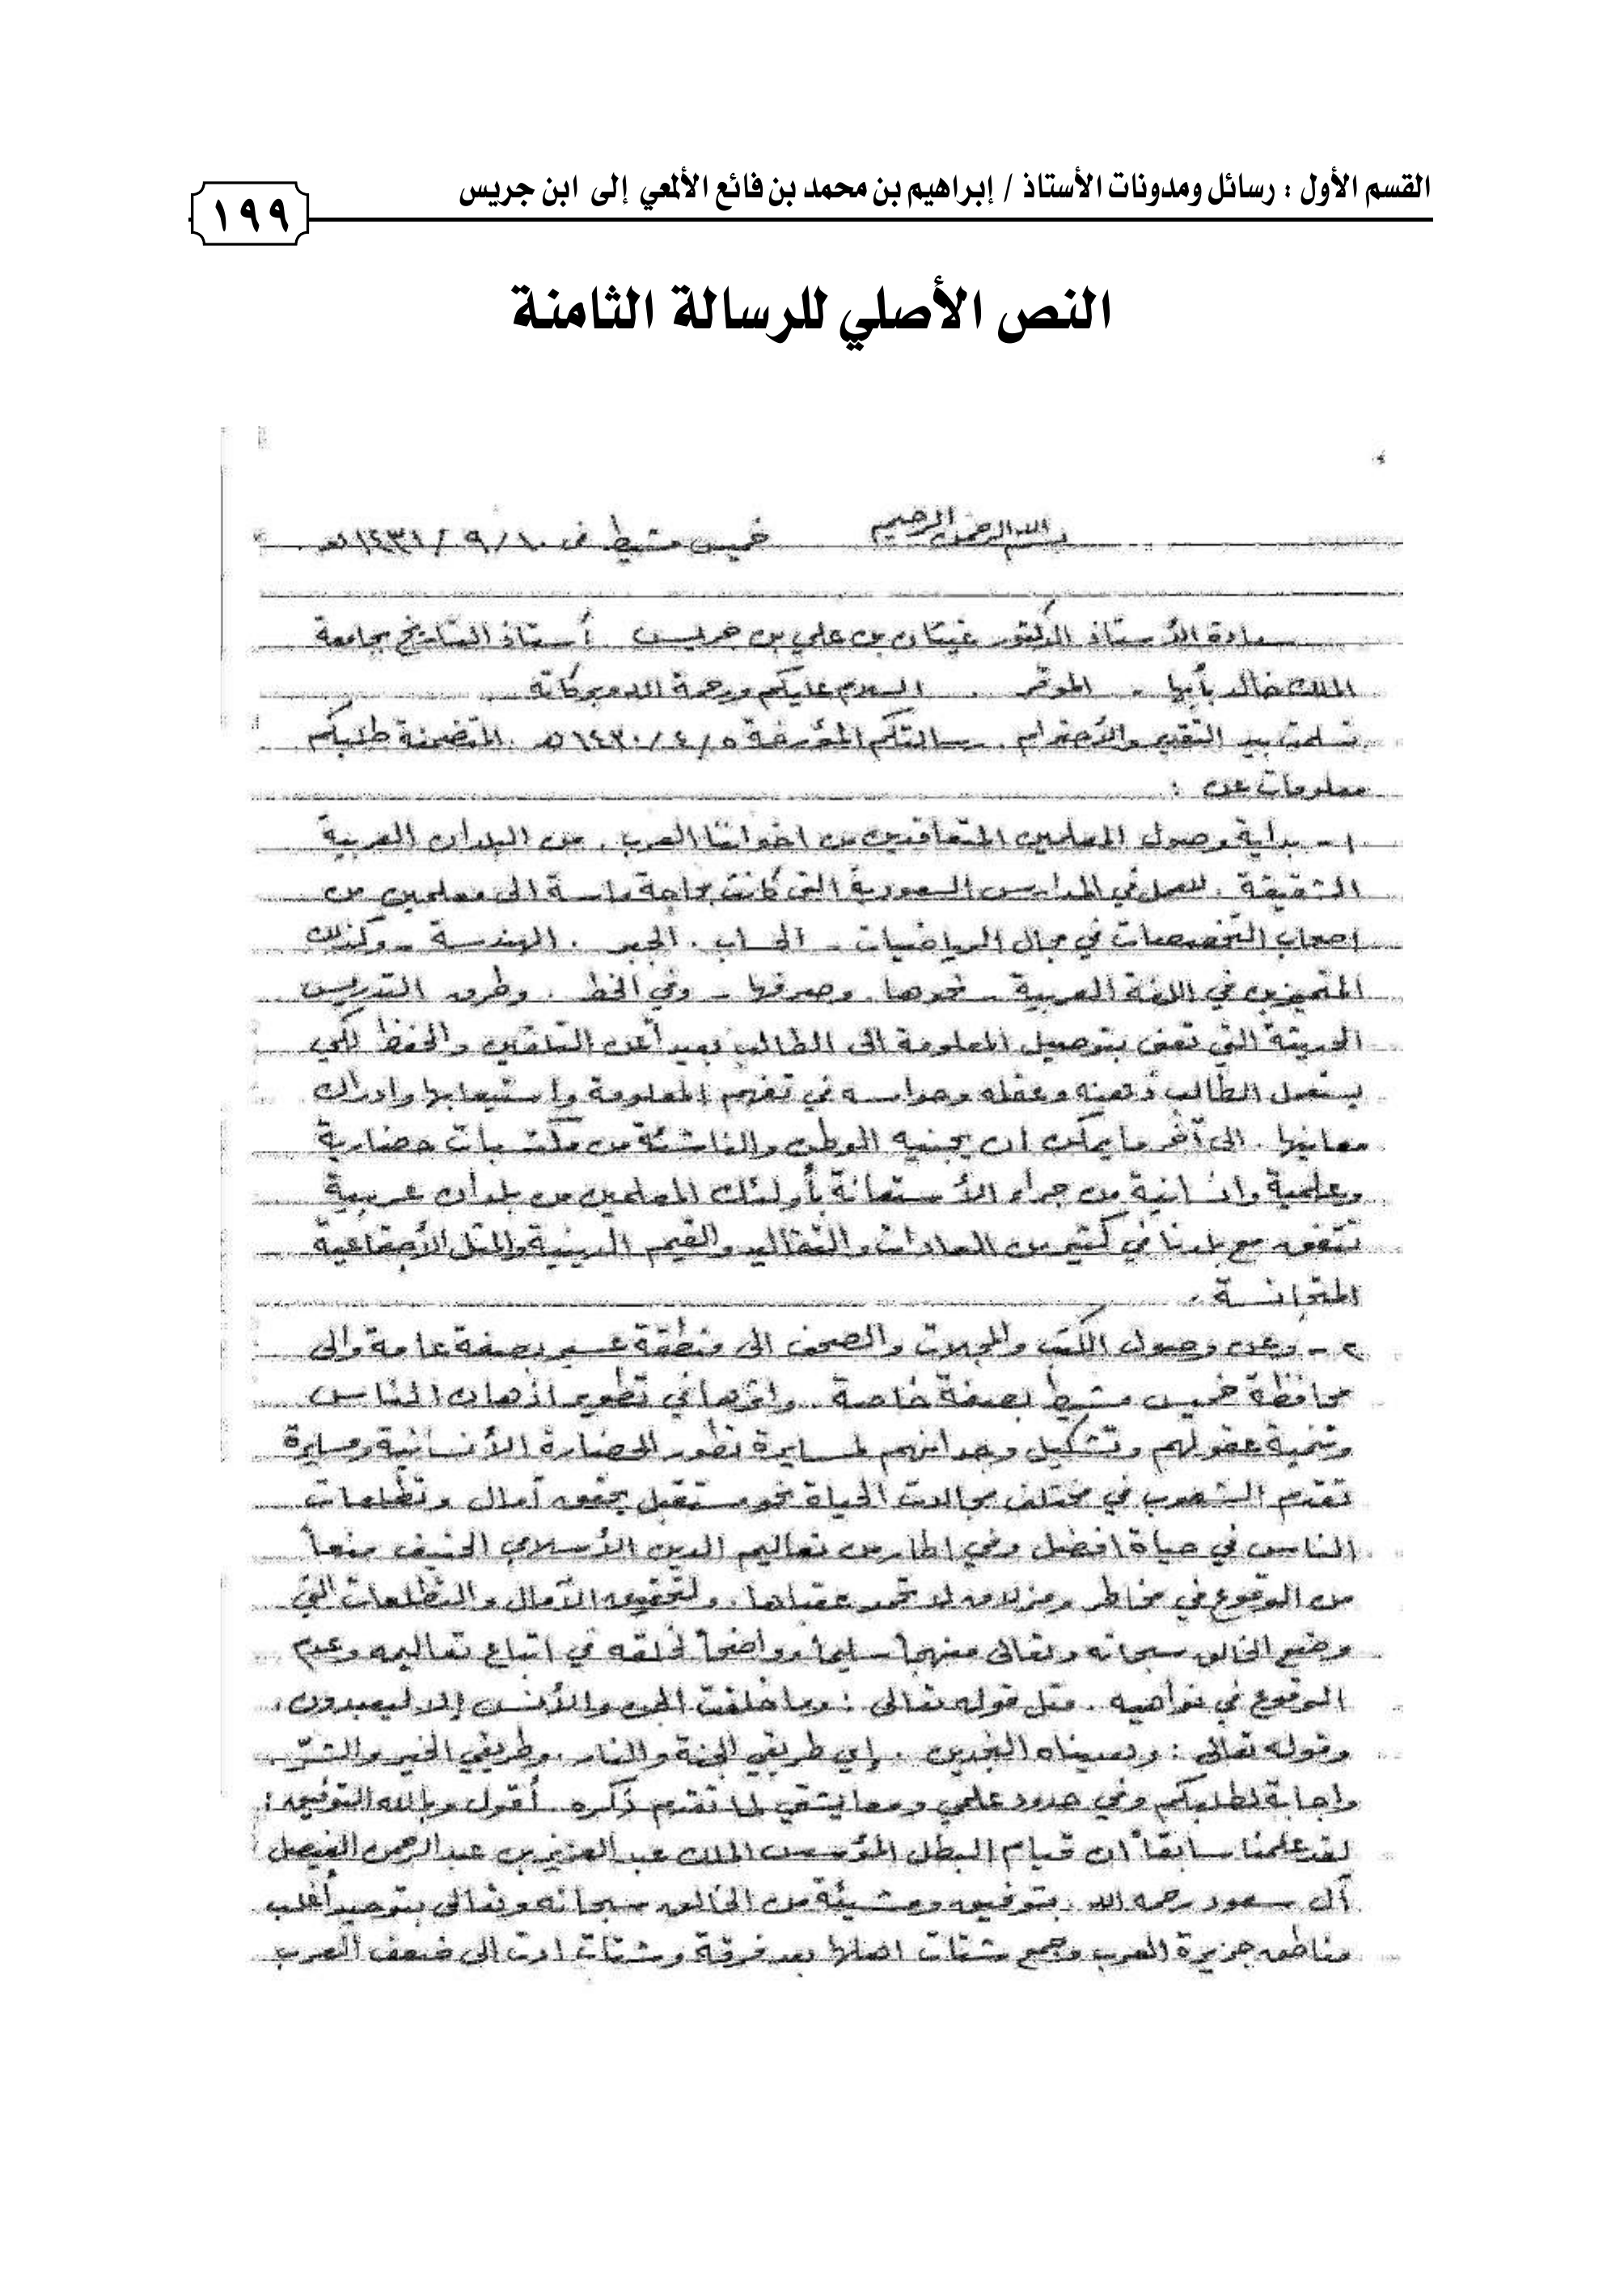 القسم الأول : رسائل ومدونات الأستاذ / إبراهيم بن محمد بن فائع الألمعي إلى ابن جريس
١٩٩
النص الأصلي للرسالة الثامنة
بسم الله الرحمن الرحيم خميس مشيط في ١٠/ ٩ / ١٤٣١هـ
سعادة الأستاذ الدكتور غيثان بن علي بن جريس أستاذ التاريخ بجامعة
الملك خالد بأبها - الموقر . السلام عليكم ورحمة الله وبركاته
تسلمت بيد التقدير والأحترام . رسالتكم المؤرخة ٥/ ٤/ ١٤٣٠هـ . المتضمنة طلبكم
معلومات عن :
١- بداية وصول المعلمين المتعاقدين من اخواننا العرب . من البلدان العربية
الشقيقة . للعمل في المدارس السعودية التي كانت بحاجة ماسة الى معلمين من
اصحاب التخصصات في مجال الرياضيات - الحساب . الجبر . الهندسة - وكذلك
المتميزين في اللغة العربية - نحوها وصرفها - وفي الخط . وطرق التدريس
الحديثة التي تعنى بتوصيل المعلومة الى الطالب بعيداً عن التلقين والحفظ لكي
يستعمل الطالب ذهنه وعقله وحواسه في تفهم المعلومة واستيعابها وادراك
معانيها . الى آخر ما يمكن ان يجنيه الوطن والناشئة من مكتسبات حضارية
وعلمية وانسانية من جراء الأستعانة بأولئك المعلمين من بلدان عربية
تتفق مع بلدنا في كثير من العادات والتقاليد والقيم الدينية والمثل الأجتماعية
المتجانسة .
٢- وعن وصول الكتب والمجلات والصحف الى منطقة عسير بصفة عامة والى
محافظة خميس مشيط بصفة خاصة . واثرها في تطوير اذهان الناس
وتنمية عقولهم وتشكيل وجدانهم لمسايرة تطور الحضارة الأنسانية ومسايرة
تقدم الشعوب في مختلف مجالات الحياة نحو مستقبل يحقق آمال وتطلعات
الناس في حياة افضل وفي اطار من تعاليم الدين الأسلامي الحنيف منعاً
من الوقوع في مخاطر ومزلاق لا تحمد عقباها . ولتحقيق الآمال والتطلعات التي
وضع الخالق سبحانه وتعالى منهجاً سليماً وواضحاً لخلقه في اتباع تعاليمه وعدم
الوقوع في نواهيه . مثل قوله تعالى : وما خلقت الجن والأنس إلا ليعبدون،
وقوله تعالى : وهديناه النجدين . إي طريقي الجنة والنار . وطريقي الخير والشرّ .
واجابة لطلبكم وفي حدود علمي ومعايشتي لما تقدم ذكره أقول وبالله التوفيق :
لقد علمنا سابقاً أن قيام البطل المؤسس الملك عبد العزيز بن عبد الرحمن الفيصل
آل سعود رحمه الله . بتوفيق ومشيئة من الخالق سبحانه وتعالى بتوحيد أغلب
مناطق جزيرة العرب وجمع شتات اهلها بعد فرقة وشتات ادت الى ضعف العرب